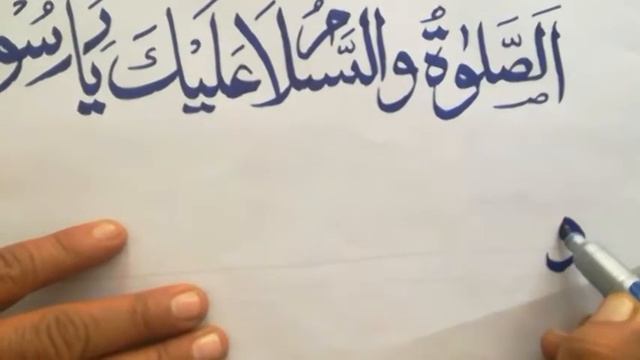 اَلصَّلٰوةُ والسَّلامُ عَلَیْكَ یَا رَسُو